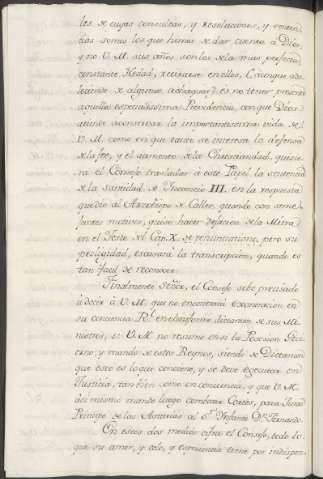 les de cuyas consultas, y resoluciones, y omisio-
nes somos los que hemos de dar cuenta a Dios,
y no V. M. sus años son los de la mas perfecta
constante Hedad, reinarse en ellos, aunque ado-
leciendo de algunos achaques es no tener presente
aquella especialissima Providencia, con que Dios
atiende a conservar la importantissima vida de
V. M. como en que tanto se interesa la defensa
de la fee, y el aumento de la Christiandad, quisie-
ra el Consejo trasladar a este Papel la sentencia
de la santidad de Inocencio III. en la respuesta
que dio al Arzobispo de Caller, quando con
motivos, quiso hacer dejacion de la Mitra,
en el Texto del Cap. X. de renunciatione, pero su
prolijidad, escusara la transcripcion, quando es
tan facil de reconocer.
Finalmente Señor, el Consejo se be precisado
a decir a V. M. que no encontrará exoneracion en
su conciencia Rl. en el uniforme dictamen de sus Mi-
nistros, si V. M. no resume en si la Posesion, Go-
vierno, y mando de estos Reynos, siendo de Dictamen
que esto es lo que conviene, y se debe executar en
Justicia, tambien como en conciencia, y que V. M.
assi mismo mande luego combocar Cortes, para Jurar
Principe de las Asturias al Sr. Infante Dn. Fernando.
En estos dos medios cifra el Consejo, todo lo
que su amor, y celo, y conciencia tiene por indispen-